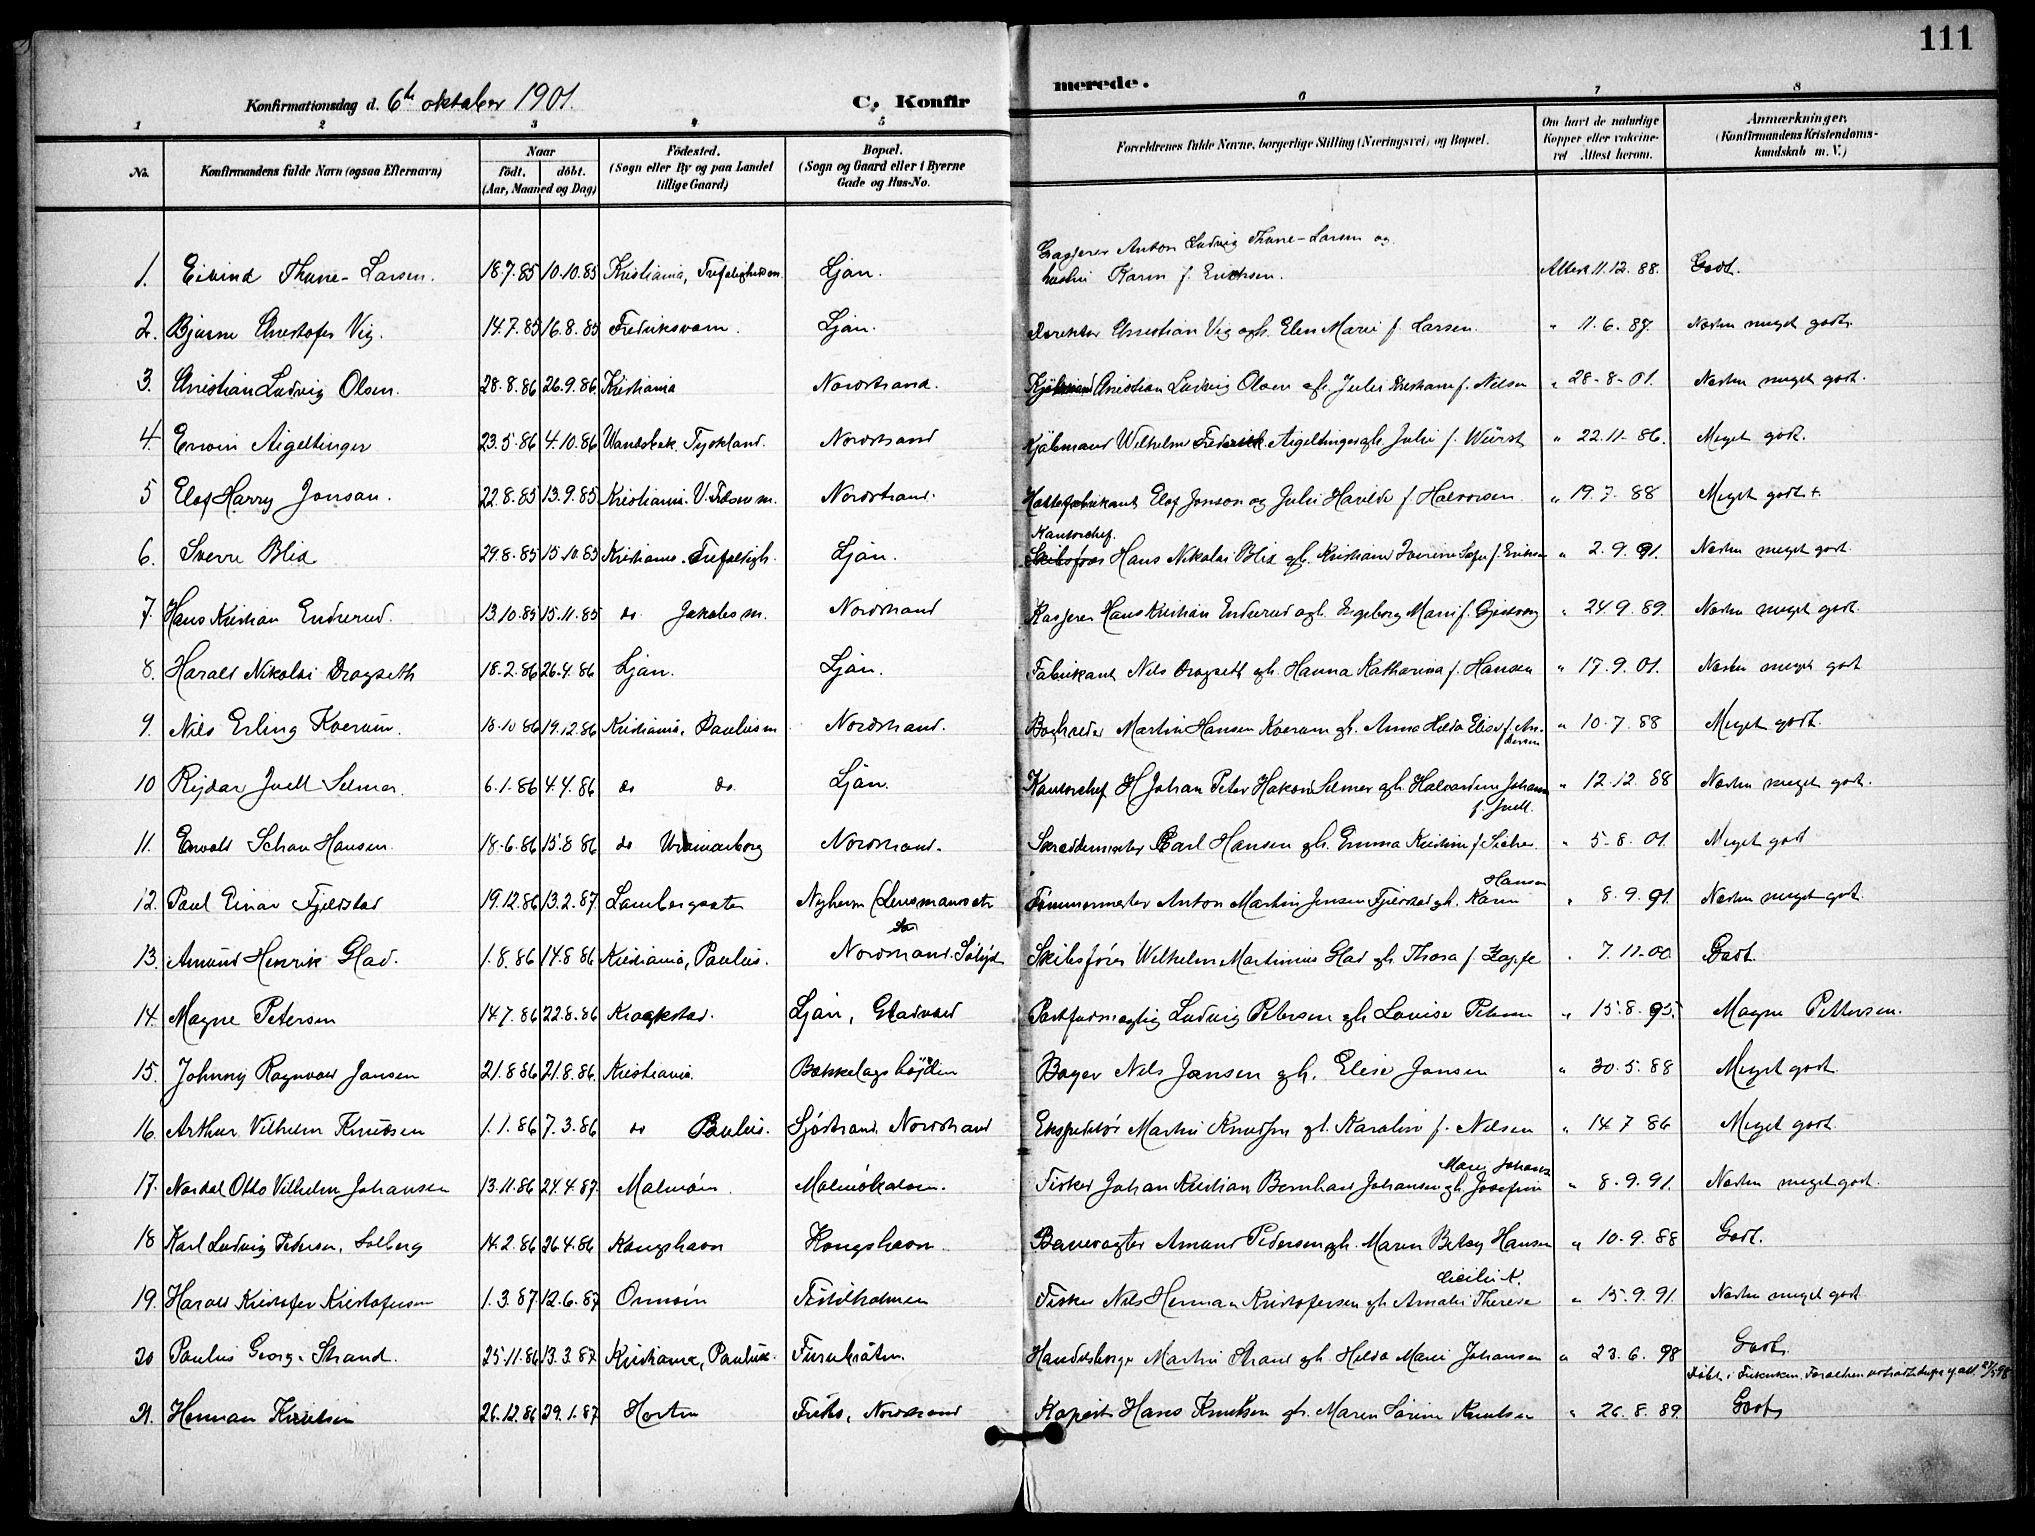 111
Konfirmationsdag d. 6te oktober 1901.
C. Konfir
merede.
1 2 3 4 5 6 7 8
No. Konfirmandens fulde Navn (ogsaa Efternavn) Naar født. døbt. (Aar, Maaned og Dag) Fødested. (Sogn eller By og paa Landet tillige Gaard) Bopæl. (Sogn og Gaard eller i Byerne Gade og Hus-No. Forældrenes fulde Navne, borgerlige Stilling (Næringsvei) og Bopæl. Om havt de naturlige Kopper eller vakcineret Attest herom. Anmærkninger. (Konfirmandens Kristendomskundskab m. V.)
1. Eivind Thune-Larsen. 18.7.85 10.10.85 Kristiania, Ljan. Anton Ludvig Thune-Larsen og
hustru Karen f. Eriksen. Attest 11.12.88. Godt.
2. Bjarne Christofer Vig. 14.7.85 16.8.85 Fredriksværn. Ljan. Direktør Christian Vig og h. Elen Marie f. Larsen. " 11.6.87. Næsten meget godt.
3. Christian Ludvig Olsen. 28.8.86 26.9.86 Kristiania Nordstrand. Kjøbmand Christian Ludvig Olsen og h. Julie f. Nilsen " 28-8-01. Næsten meget godt.
4. Erwin Aigeltinger 23.5.86 4.10.86 Wandsbek. Tyskland. Nordstrand Kjøbmand Wilhelm Frederick Aigeltinger og h. Julie f. Würst " 22.11-86. Meget godt.
5 Elof Harry Jonson. 22.8.85 13.9.85 Kristiania. Nordstrand. Elof Jonson og Julie Havilde f. Halvorsen " 19.7.88 Meget godt +.
Kontorchef.
6. Sverre Blix 29.8.85 15.10.85 Kristiania. Trefoldigh. Ljan. Skibsfører Hans Nikolai Blix og h. Kristiane f. Eriksen " 2.9.91. Næsten meget godt.
7. Hans Kristian Endrerud. 13.10.85 15.11.85 do Jakobs m. Nordstrand Kasserer Hans Kristian Endrerud og h. Ingeborg Marie f. " 24.9.89. Næsten meget godt.
8. Harald Nikolai Dragseth 18.2.86 26.4.86 Ljan. Ljan. Fabrikant Nils Dragseth og h. Hanna Katharina f. Hansen " 17.9.01. Næsten meget godt
9. Nils Erling Kværum. 18.10 86 19.12.86 Kristiania, Paulus m Nordstrand. Boghandler Martin Hansen Kværum og h. Anna Hilda Elise f. Andersen " 10.7.88 Meget godt.
10 Rejdar Juell Selmer. 6.1.86 4.4.86 do do. Ljan. Kontorchef H Johan Peter Hakon Selmer og h. Halvardine Johanne
f. Juell. " 12.12.88 Næsten meget godt.
11. Ewald Schou Hansen. 18.6.86 15.8 86 do Uranienborg Nordstrand. Skræddermester Carl Hansen og h. Emma Kristine f. " 5-8.01. Meget godt
Hansen
12. Paul Einar Fjeldstad 19.12.86 13.2.87. Lambertseter Nyheim (Lensmannsetr Tømmermester Anton Martin Jensen Fjeldstad og h. Karen " 8.9.91. Næsten meget godt.
13. Amund Henrik Glad. 1.8.86 14.8 86 Kristiania, Paulus. Nordstrand. Solhøjd Skibsfører Wilhelm Martinius Glad og h. Thora f. Zapfe " 7.11-00 Godt.
14. Magne Petersen 14.7.86 22.8.86 Kraakstad. Ljan, Gladvold Postfuldmægtig Ludvig Petersen og h. Lovise Petersen " 15.8.95. Magne Pettersen.
15. Johnny Ragnvald Jansen 21.8 86 21.8.86. Kristiania. Bækkelagshøjden Bager Nils Jansen og h. Elise Jansen " 30.5.88 Meget godt
16. Arthur Vilhelm Knudsen 1.1.86 7.3.86 do Paulus. Sjøstrand. Nordstrand Ekspeditør Martin Knudsen og h. Karoline f. Nilsen " 14.7 86 Meget godt.
Marie
17. Nordal Otto Vilhelm Johansen 13.11.86 24.4.87. Malmøen. Malmøkalven. Fisker Johan Kristian Bernhard Johansen og h. Josefine " 8-9.91. Næsten meget godt.
18 Karl Ludvig Pedersen, Solberg 14.2.86 26.4.86 Kongshavn Kongshavn. Banevogter Amund Pedersen og h. Maren Betsy Hansen " 10-9.88 Godt.
Cicilie K.
19. Harald Kristofer Kristofersen 1.3.87. 12.6.87 Ormøen Fiskholmen Fisker Nils Herman Kristofersen og h. Amalie Therese " 15.9.91. Næsten meget godt
20 Paulus Georg Strand. 25.11.86 13.3.87. Kristiania, Paulus. Furubråten. Martin Strand og h. Hilda Marie Johansen " 23.6.98 Godt.
Døbt i Frikirken.
21. Herman Knutsen 26.12.86 29.1.87 Horten Friis, Nordstrand Hans Knutsen og h. Maren Sørine Knutsen " 26.8.89. Godt